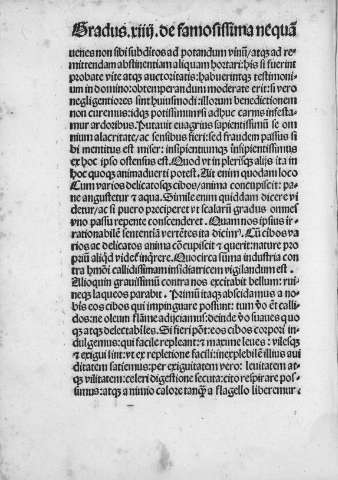 Gradus. xiiij. de famosissima nequā
uenes non sibi subditos ad potandum vinū/atqȝ ad re⸗
mittendam abstinentiam aliquam hortari: his si fuerint
probate vite atqȝ auctoritatis: habuerintqȝ testimoni⸗
um in domino: obtemperandum moderate erit: si vero
negligentiores sint huiusmodi: illorum benedictionem
non curemus: idqȝ potissimum si adhuc carnis infesta⸗
mur ardoribus. Putauit euagrius sapientissimū se om
nium alacritate/ac sensibus fieri: sed fraudem passus si
bi mentitus est miser: insipientiumqȝ insipientissimus
ex hoc ipso ostensus est. Quod vt in plerisqȝ alijs ita in
hoc quoqȝ animaduerti potest. Ait enim quodam loco
Cum varios delicatosqȝ cibos/anima concupiscit: pa⸗
ne angustetur & aqua. Simile enim quiddam dicere vi
detur/ac si puero preciperet vt scalarū gradus omnes
vno passu repente conscenderet. Quam nos ipsius ir⸗
rationabilē sententiā vertētes ita dicimꝰ. Cū cibos va
rios ac delicatos anima cōcupiscit & querit: nature pro
priū aliqd videt inqrere. Quocirca sūma industria con
tra hmōi callidissimam insidiatricem vigilandum est.
Alioquin grauissimū contra nos excitabit bellum: rui⸗
neqȝ laqueos parabit. Primū itaqȝ abscidamus a no⸗
bis eos cibos qui impinguare possunt: tum vo et cali⸗
dos: ne oleum flāme adijciamus: deinde vo suaues quo
qȝ atqȝ delectabiles. Si fieri pōt: eos cibos corpori in⸗
dulgemus: qui facile repleant: & maxime leues: vilesqȝ
& exigui sint: vt ex repletione facili: inexplebilē illius aui
ditatem satiemus: per exiguitatem vero: leuitatem at⸗
qȝ vilitatem: celeri digestione secuta: cito respirare pos⸗
simus: atqȝ a nimio calore tanqȝ a flagello liberemur.